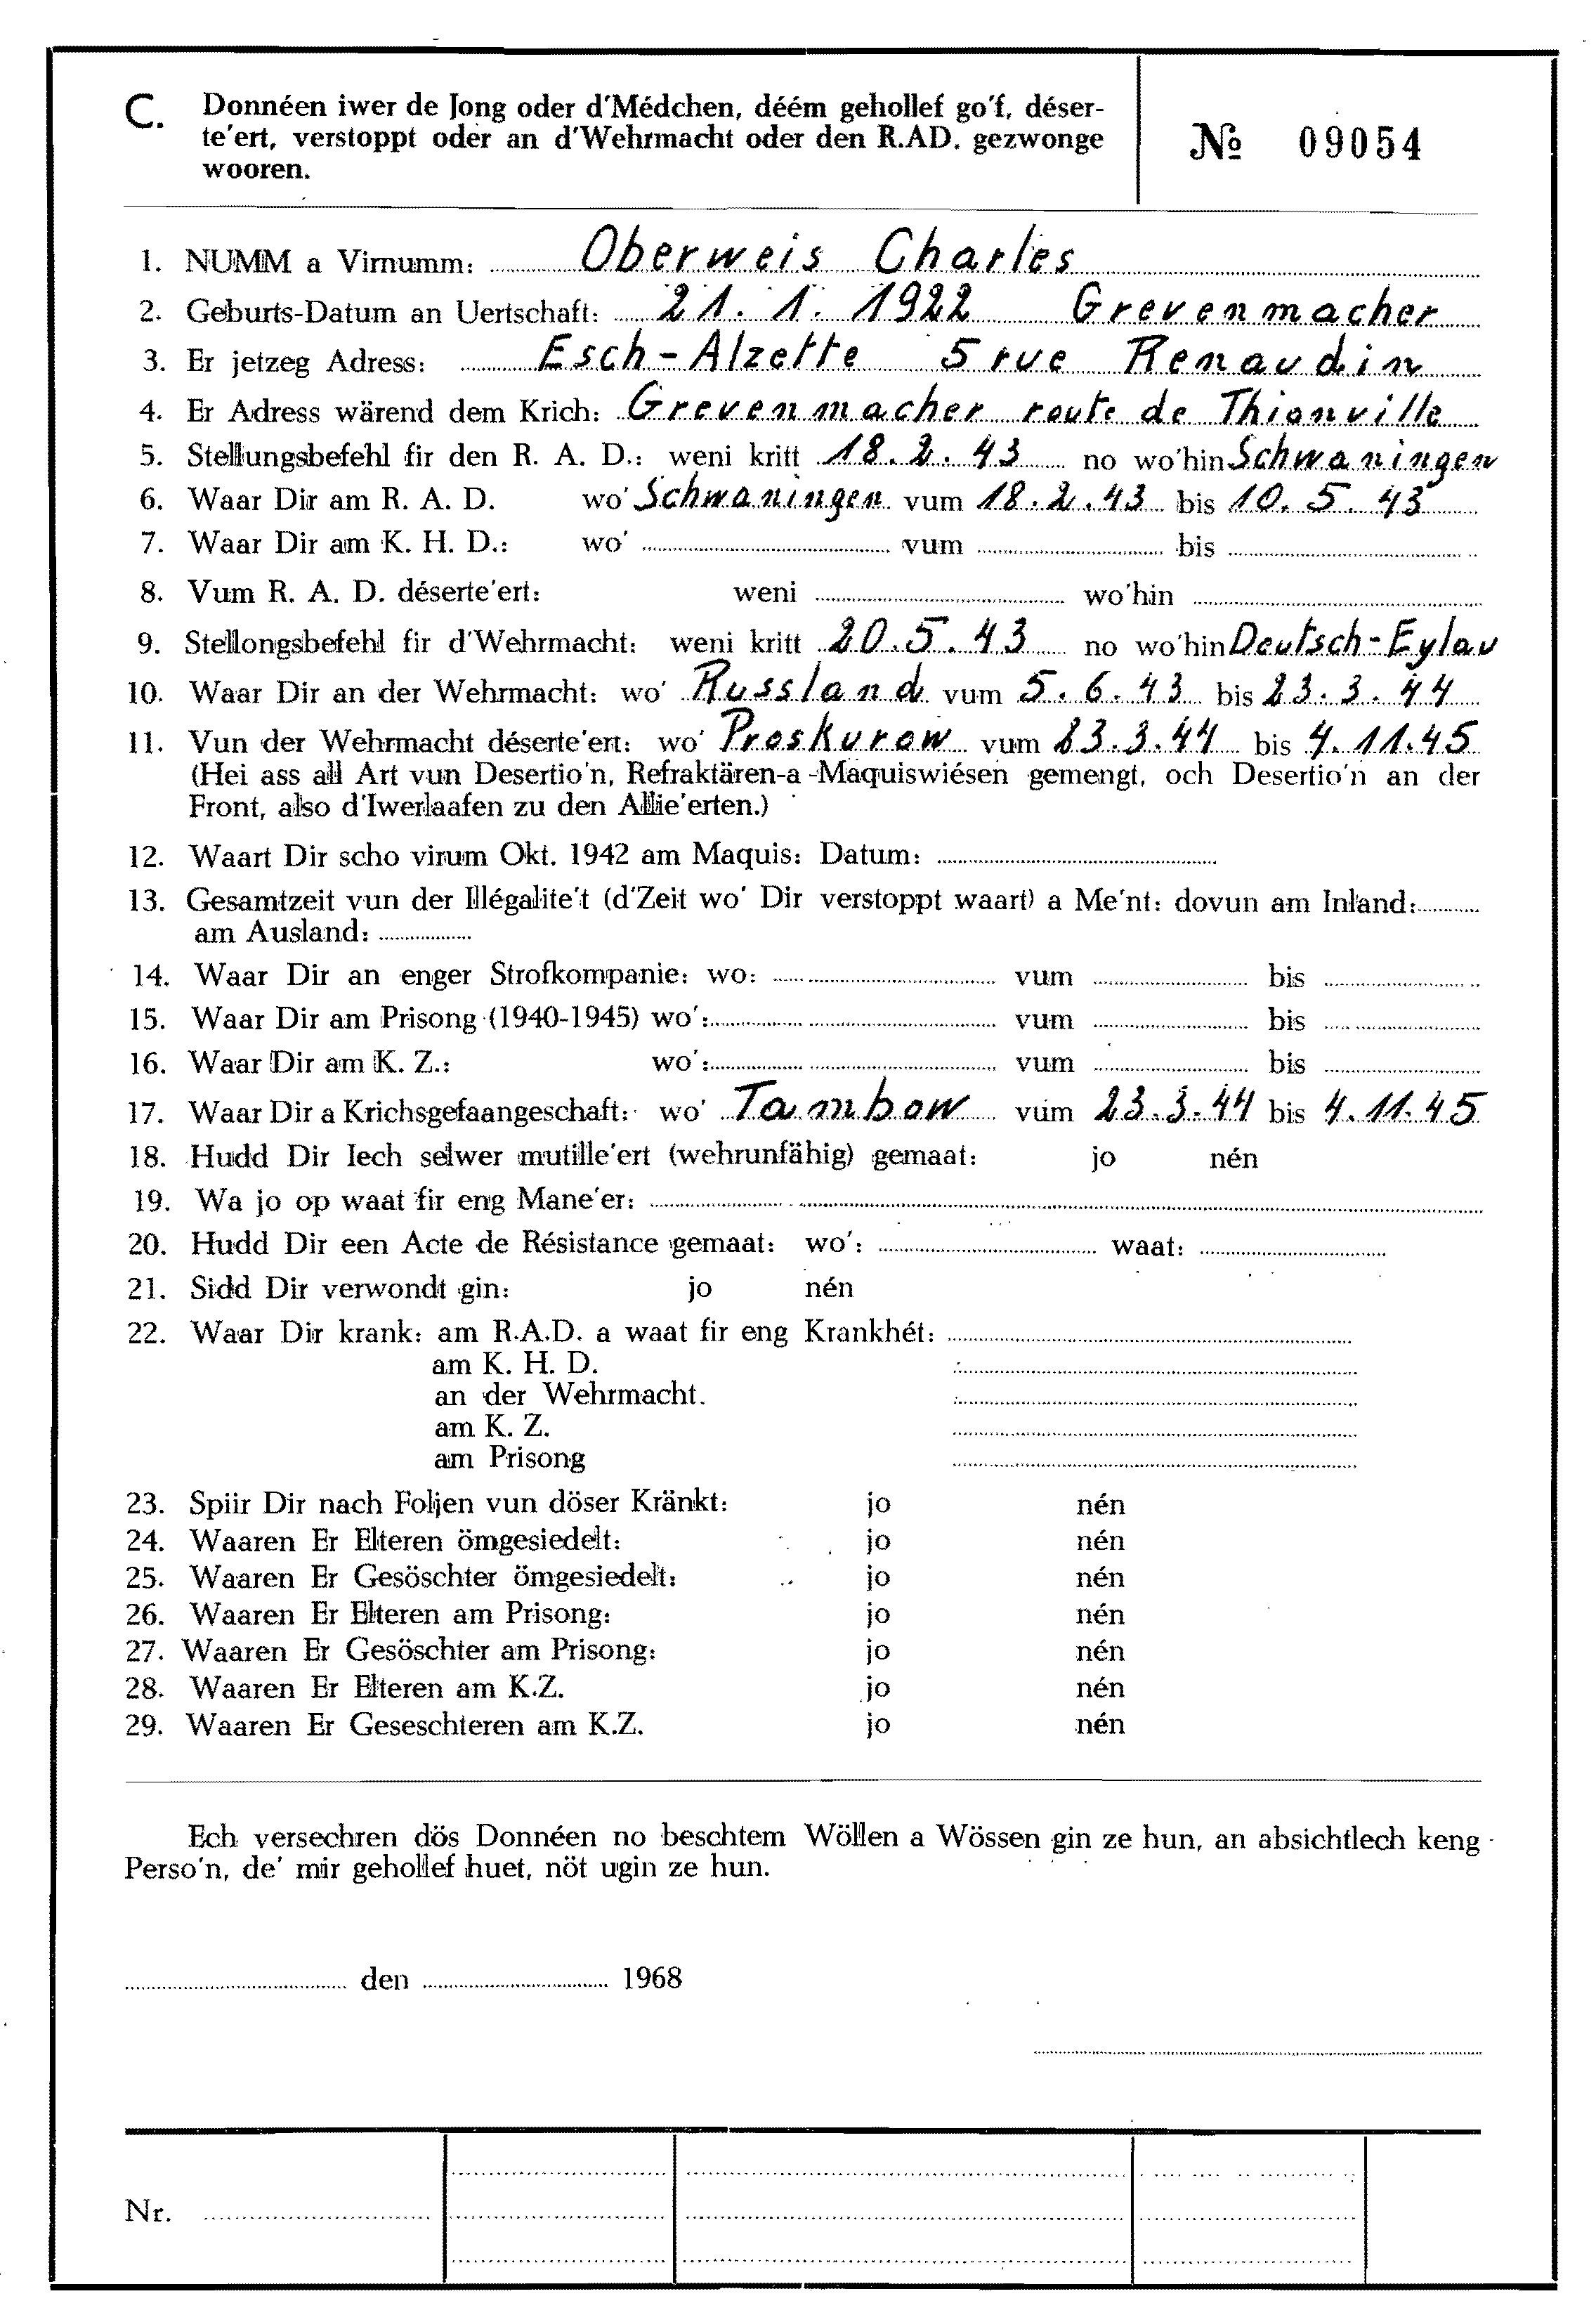 C. Donnéen iwer de Jong oder d'Médchen, déém gehollef go'f, déser-
te'ert, verstoppt oder an d'Wehrmacht oder den R.AD. gezwonge
wooren.
№ 09054
1. NUMM a Virnumm: Oberweis Charles
2. Geburts-Datum an Uertschaft: 21. 1. 1922 Grevenmacher
3. Er jetzeg Adress: Esch-Alzette 5 rue Renaudin
4. Er Adress wärend dem Krich: Grevenmacher route de Thionville
5. Stellungsbefehl fir den R. A. D.: weni kritt 18.2.43 no wo'hin Schwaningen
6. Waar Dir am R. A. D. wo' Schwaningen vum 18.2.43 bis 10.5.43
7. Waar Dir am K. H. D.: wo' vum bis
8. Vum R. A. D. déserte'ert: weni wo'hin
9. Stellongsbefehl fir d'Wehrmacht: weni kritt 20.5.43 no wo'hin Deutsch-Eylau
10. Waar Dir an der Wehrmacht: wo' Russland vum 5.6.43 bis 23.3.44
11. Vun der Wehrmacht déserte'ert: wo' Proskurow vum 23.3.44 bis 4.11.45
(Hei ass all Art vun Desertio'n, Refraktären-a-Maquiswiésen gemengt, och Desertio'n an der
Front, also d'Iwerlaafen zu den Allie'erten.)
12. Waart Dir scho virum Okt. 1942 am Maquis: Datum:
13. Gesamtzeit vun der Illégalite't (d'Zeit wo' Dir verstoppt waart) a Me'nt: dovun am Inland:
am Ausland:
14. Waar Dir an enger Strofkompanie: wo: vum bis
15. Waar Dir am Prisong (1940-1945) wo': vum bis
16. Waar Dir am K. Z.: wo': vum bis
17. Waar Dir a Krichsgefaangeschaft: wo' Tambow vum 23.3.44 bis 4.11.45
18. Hudd Dir Iech selwer mutille'ert (wehrunfähig) gemaat: jo nén
19. Wa jo op waat fir eng Mane'er:
20. Hudd Dir een Acte de Résistance gemaat: wo': waat:
21. Sidd Dir verwondt gin: jo nén
22. Waar Dir krank: am R.A.D. a waat fir eng Krankhét:
am K. H. D.
an der Wehrmacht.
am K. Z.
am Prisong
23. Spiir Dir nach Foljen vun döser Kränkt: jo nén
24. Waaren Er Elteren ömgesiedelt: jo nén
25. Waaren Er Gesöschter ömgesiedelt: jo nén
26. Waaren Er Elteren am Prisong: jo nén
27. Waaren Er Gesöschter am Prisong: jo nén
28. Waaren Er Elteren am K.Z. jo nén
29. Waaren Er Geseschteren am K.Z. jo nén
Ech versechren dös Donnéen no beschtem Wöllen a Wössen gin ze hun, an absichtlech keng
Perso'n, de' mir gehollef huet, nöt ugin ze hun.
den 1968
Nr.